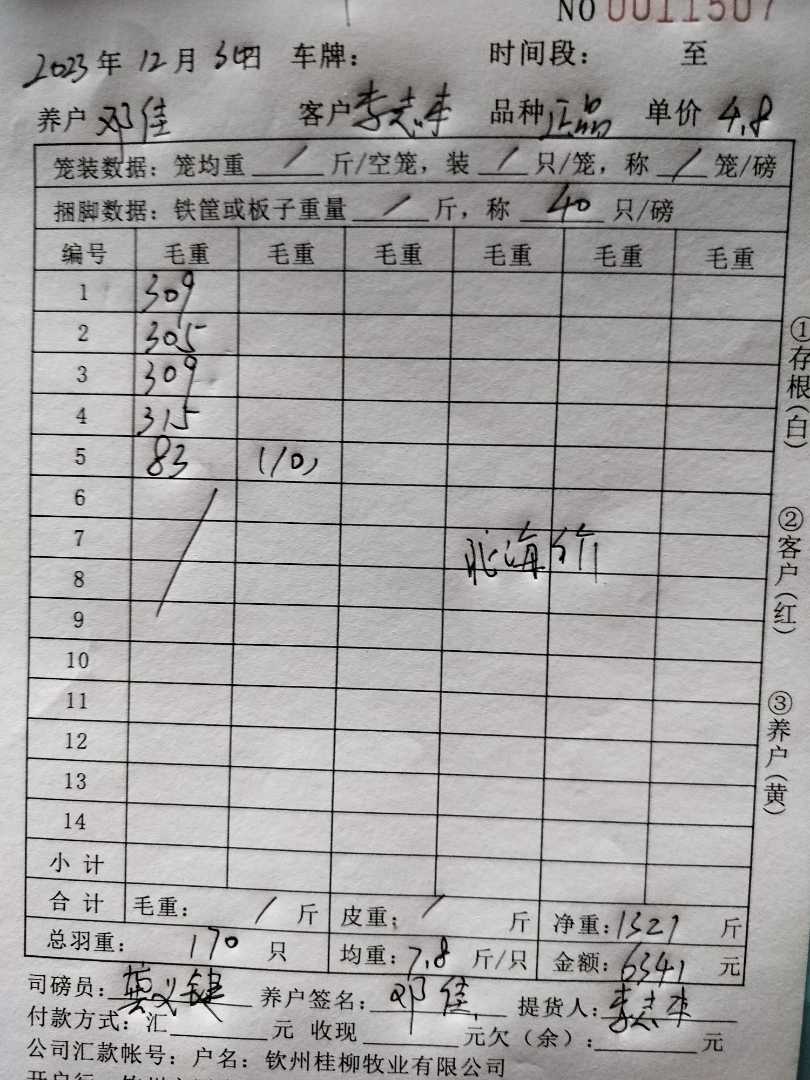 NO 0011507
2023年 12月 30日 车牌： 时间段： 至
养户 邓佳 客户 李志 品种 正品 单价 4.8
笼装数据：笼均重 / 斤/空笼，装 / 只/笼，称 / 笼/磅
捆脚数据：铁筐或板子重量 / 斤，称 40 只/磅
编号 毛重 毛重 毛重 毛重 毛重 毛重
1 309
2 305
3 309
4 315
5 83 (10)
6
7 北海价
8
9
10
11
12
13
14
小计
合计 毛重： / 斤 皮重： / 斤 净重：1321 斤
总羽重： 170 只 均重：7.8 斤/只 金额：6341 元
司磅员：莫义键 养户签名：邓佳 提货人：李志
付款方式：汇 元 收现 元欠（余）： 元
公司汇款帐号：户名：钦州桂柳牧业有限公司
①存根(白)
②客户(红)
③养户(黄)